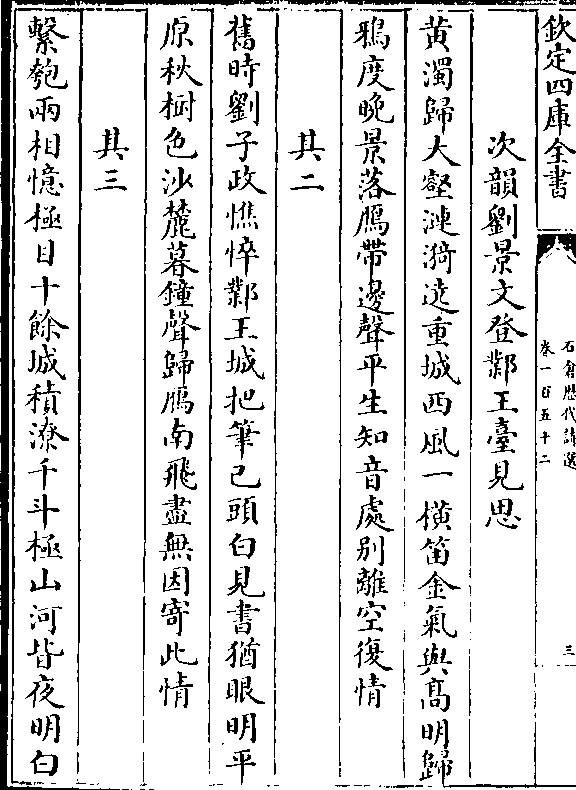 欽定四庫全書
石倉歷代詩選
卷一百五十二
三
次韻劉景文登鄴王臺見思
黃濁歸大壑漣漪遶重城西風一橫笛金氣與高明歸
鴉度晚景落鴈帶邊聲平生知音處別離空復情
其二
舊時劉子政憔悴鄴王城把筆已頭白見書猶眼明平
原秋樹色沙麓暮鐘聲歸鴈南飛盡無因寄此情
其三
繫匏兩相憶極目十餘城積潦千斗極山河皆夜明白